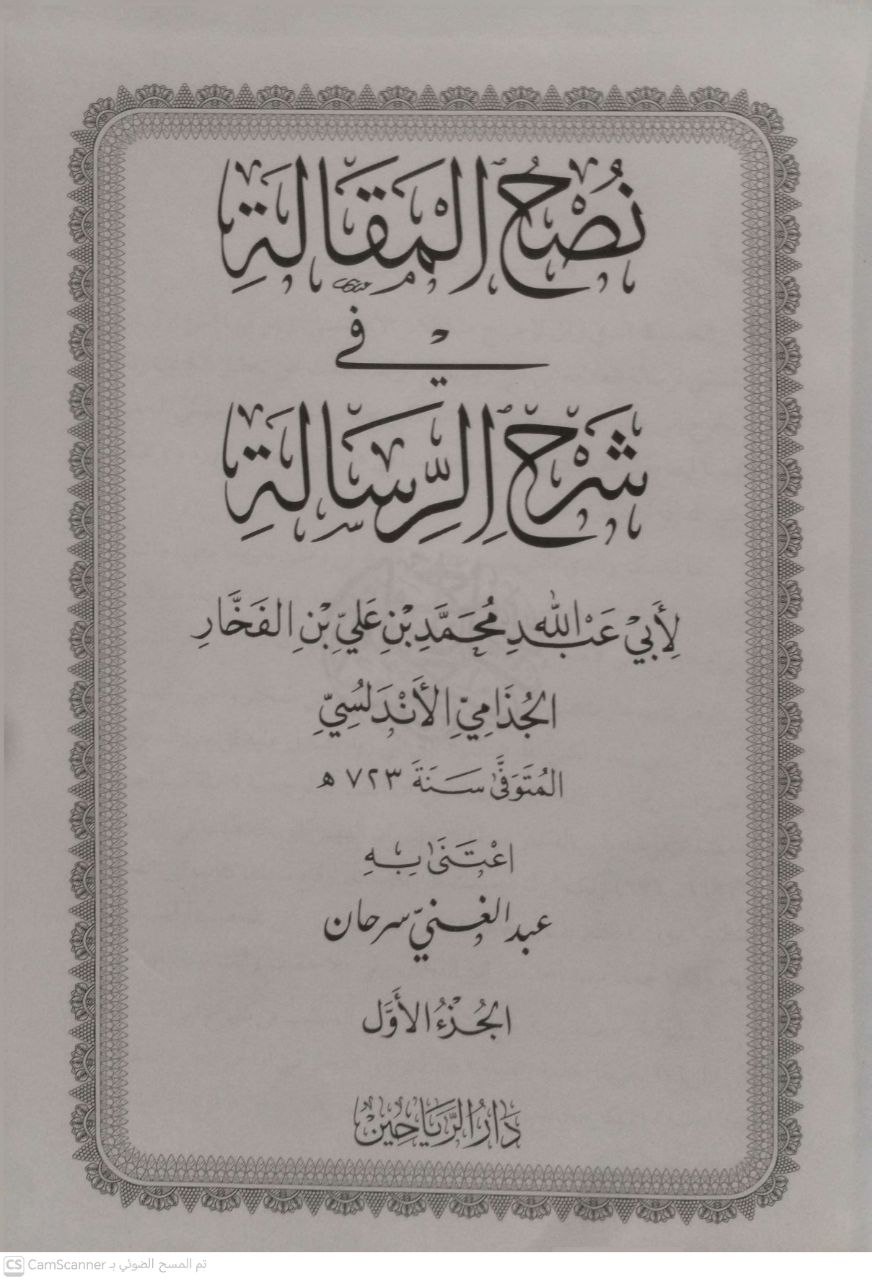 نُصْحُ الْمَقَالَةِ
فِي
شَرْحِ الرِّسَالَةِ
لِأَبِيْ عَبْدِ اللهِ مُحَمَّدِ بْنِ عَلِيِّ بْنِ الفَخَّارِ
الجُذَامِيِّ الأَنْدَلُسِيِّ
المُتَوَفَّى سَنَةَ ٧٢٣ هـ
اعْتَنَى بِهِ
عبد الغنيّ سرحان
الجُزْءُ الأَوَّل
دَارُ الرَّيَاحِيْن
CS CamScanner تم المسح الضوئي بـ